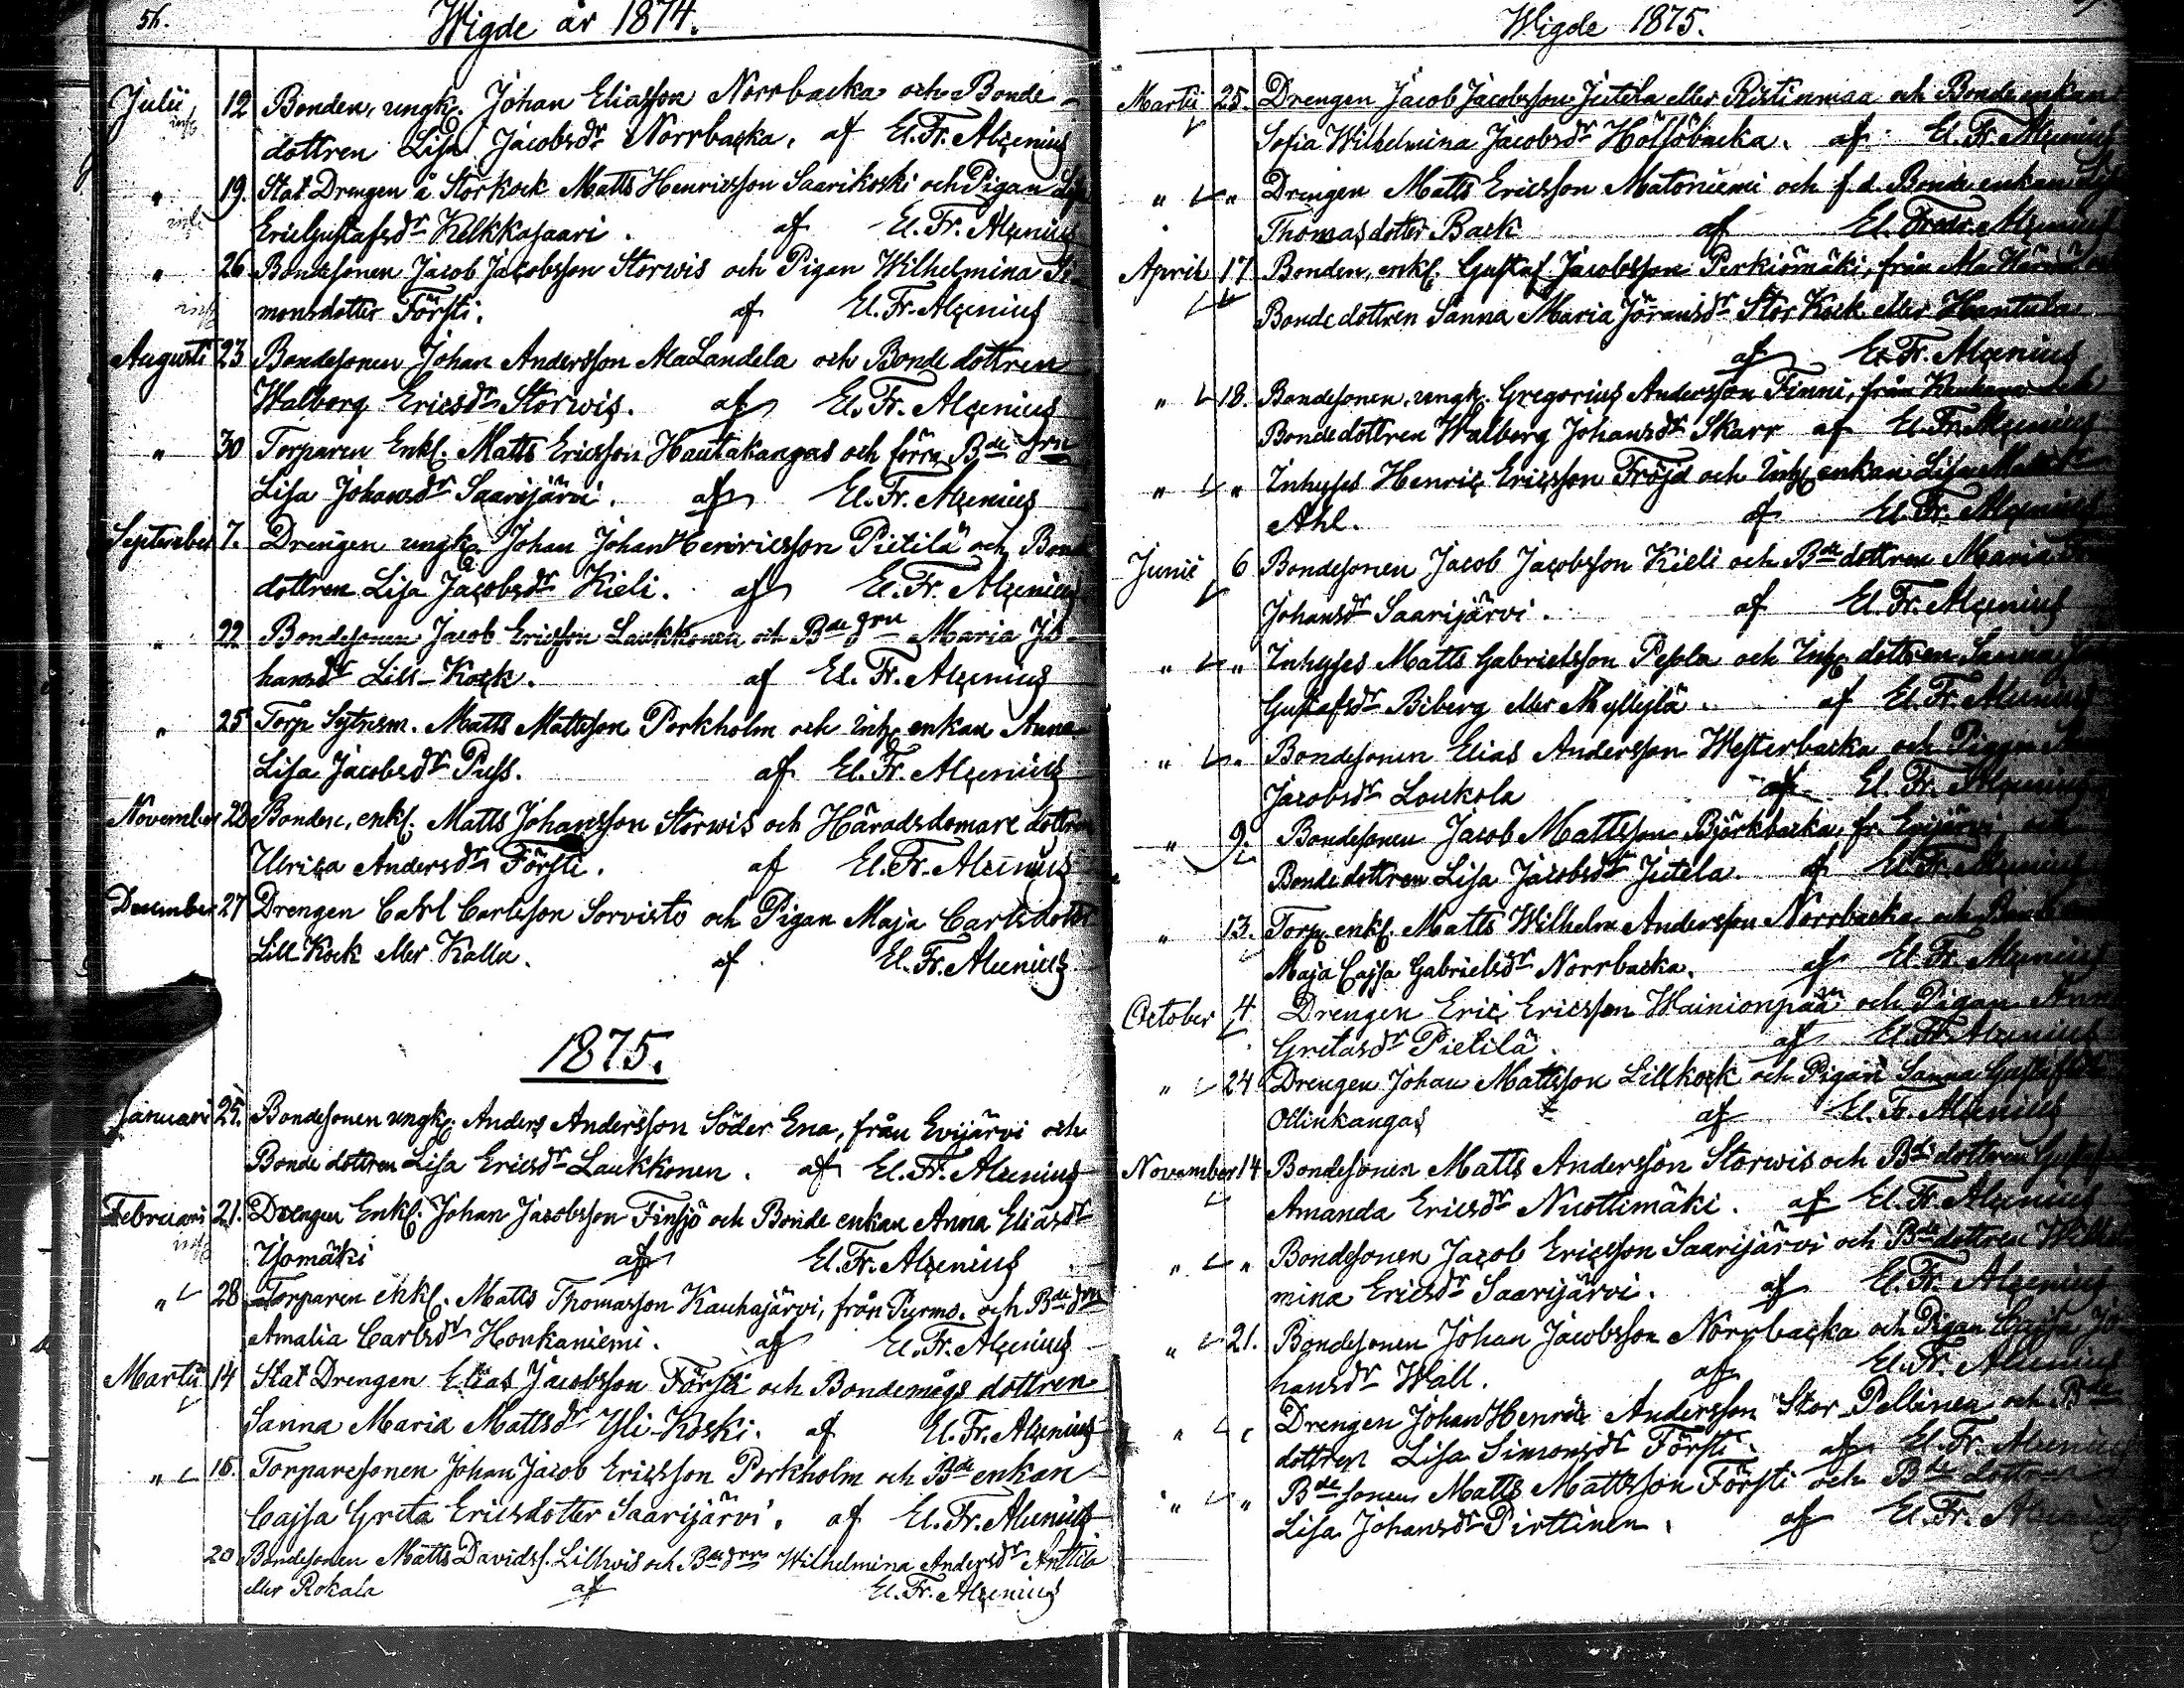 56.
Wigde år 1874.
Julii 12 Bonden, ungk. Johan Eliasson Norrbacka och Bonde-
dottren Lisa Jacobsdr Norrbacka. af El. Fr. Alcenius
" 19. Stat Drengen å Storkock Matts Henricsson Saarikoski och Pigan Lisa
Ericgustafsdr Kelkkasaari. af El. Fr. Alcenius
" 26 Bondesonen Jacob Jacobsson Storwis och Pigan Wilhelmina Si-
monsdotter Försti. af El. Fr. Alcenius
Augusti 23 Bondesonen Johan Andersson AlaLandela och Bonde dottren
Walborg Ericsdr Storwis. af El. Fr. Alcenius
" 30 Torparen Enkl. Matts Ericsson Hautakangas och förra Bde
Lisa Johansdr Saarijärvi. af El. Fr. Alcenius
September 7. Drengen ungk. Johan JohanHenricsson Pietilä och Bonde
dottren Lisa Jacobsdr Kieli. af El. Fr. Alcenius
" 22 Bondesonen Jacob Ericsson Laukkonen och Bdedrn Maria Jo-
hansdr Lill-Kock. af El. Fr. Alcenius
" 25 Torp Sytnism. Matts Mattsson Porkholm och inh. enkan Anna
Lisa Jacobsdr Puss. af El. Fr. Alcenius
November 22 Bonden, enkl. Matts Johansson Storwis och Häradsdomare dottren
Ulrica Andersdr Försti. af El. Fr. Alcenius
December 27 Drengen Carl Carlsson Sorvisto och Pigan Maja Carlsdotter
Lill Kock eller Kalla. af El. Fr. Alcenius
1875.
Januari 25. Bondesonen ungk. Anders Andersson Söder Ena, från Evijärvi och
Bonde dottren Lisa Ericsdr Laukkonen. af El. Fr. Alcenius
Februari 21. Drengen Enkl. Johan Jacobsson Finsjö och Bonde enkan Anna Eliasdr
Isomäki af El. Fr. Alcenius
" 28 Torparen enkl. Matts Thomasson Kauhajärvi, från Purmo. och Bdedrn
Amalia Carlsdr Honkaniemi. af El. Fr. Alcenius
Martii 14 Stat Drengen Elias Jacobsson Försti och Bondemågs dottren
Sanna Maria Mattsdr Yli-Koski. af El. Fr. Alcenius
" 15. Torparesonen Johan Jacob Ericsson Porkholm och Bde enkan
Cajsa Greta Ericsdotter Saarijärvi. af El. Fr. Alcenius
20 Bondesonen Matts Davidss. Lillwis och Bdedrn Wilhelmina Andersdr Anttila
eller Rokala af El. Fr. Alcenius
Wigde 1875.
Martii 25. Drengen Jacob Jacobsson Jutela eller Ristinmaa och Bonde enkan
Sofia Wilhelmina Jacobsdr Höljöbacka. af El. Fr. Alcenius
" " Drengen Matts Ericsson Matoniemi och f.d. Bonde enkan
Thomasdotter Back af El. Fredr. Alcenius
April 17 Bonden, enkl. Gustaf Jacobsson Perkiömäki, från
Bonde dottren Sanna Maria Jöransdr Stor Kock eller Hantula
af El. Fr. Alcenius
" 18. Bondesonen, ungk. Gregorius Andersson Finni, från
Bondedottren Walborg Johansdr Skarr af El. Fr. Alcenius
" " Inhyses Henric Ericsson Fröjd och Inh. enkan Lisa
Ahl. af El. Fr. Alcenius
Junii 6 Bondesonen Jacob Jacobsson Kieli och Bde dottren Maria
Johansdr Saarijärvi. af El. Fr. Alcenius
" " Inhyses Matts Gabrielsson Pesola och Inh. dottren Sanna
Gustafsdr Biberg eller Myllylä. af El. Fr. Alcenius
" " Bondesonen Elias Andersson Westerbacka och Pigan
Jacobsdr Loukola af El. Fr. Alcenius
" 9. Bondesonen Jacob Mattsson Björkbacka, fr. Evijärvi, och
Bonde dottren Lisa Jacobsdr Jutela. af El. Fr. Alcenius
" 13. Torp. enkl. Matts Wilhelm Andersson Norrbacka och
Maja Cajsa Gabrielsdr Norrbacka. af El. Fr. Alcenius
October 4 Drengen Eric Ericsson Wainionpää och Pigan
Gretasdr Pietilä. af El. Fr. Alcenius
" 24 Drengen Johan Mattsson Lillkock och Pigan Sanna
Ollinkangas af El. Fr. Alcenius
November 14 Bondesonen Matts Andersson Storwis och Bde dottren
Amanda Ericsdr Nuottimäki. af El. Fr. Alcenius
" " Bondesonen Jacob Ericsson Saarijärvi och Bde dottren Wilhel
mina Ericsdr Saarijärvi. af El. Fr. Alcenius
" 21. Bondesonen Johan Jacobsson Norrbacka och Pigan Cajsa Jo-
hansdr Wall. af El. Fr. Alcenius
" " Drengen Johan Henric Andersson Stor Pellinen och Bde
dottren Lisa Simonsdr Försti. af El. Fr. Alcenius
" " Bde sonen Matts Mattsson Försti och Bde dottren
Lisa Johansdr Pirttinen. af El. Fr. Alcenius